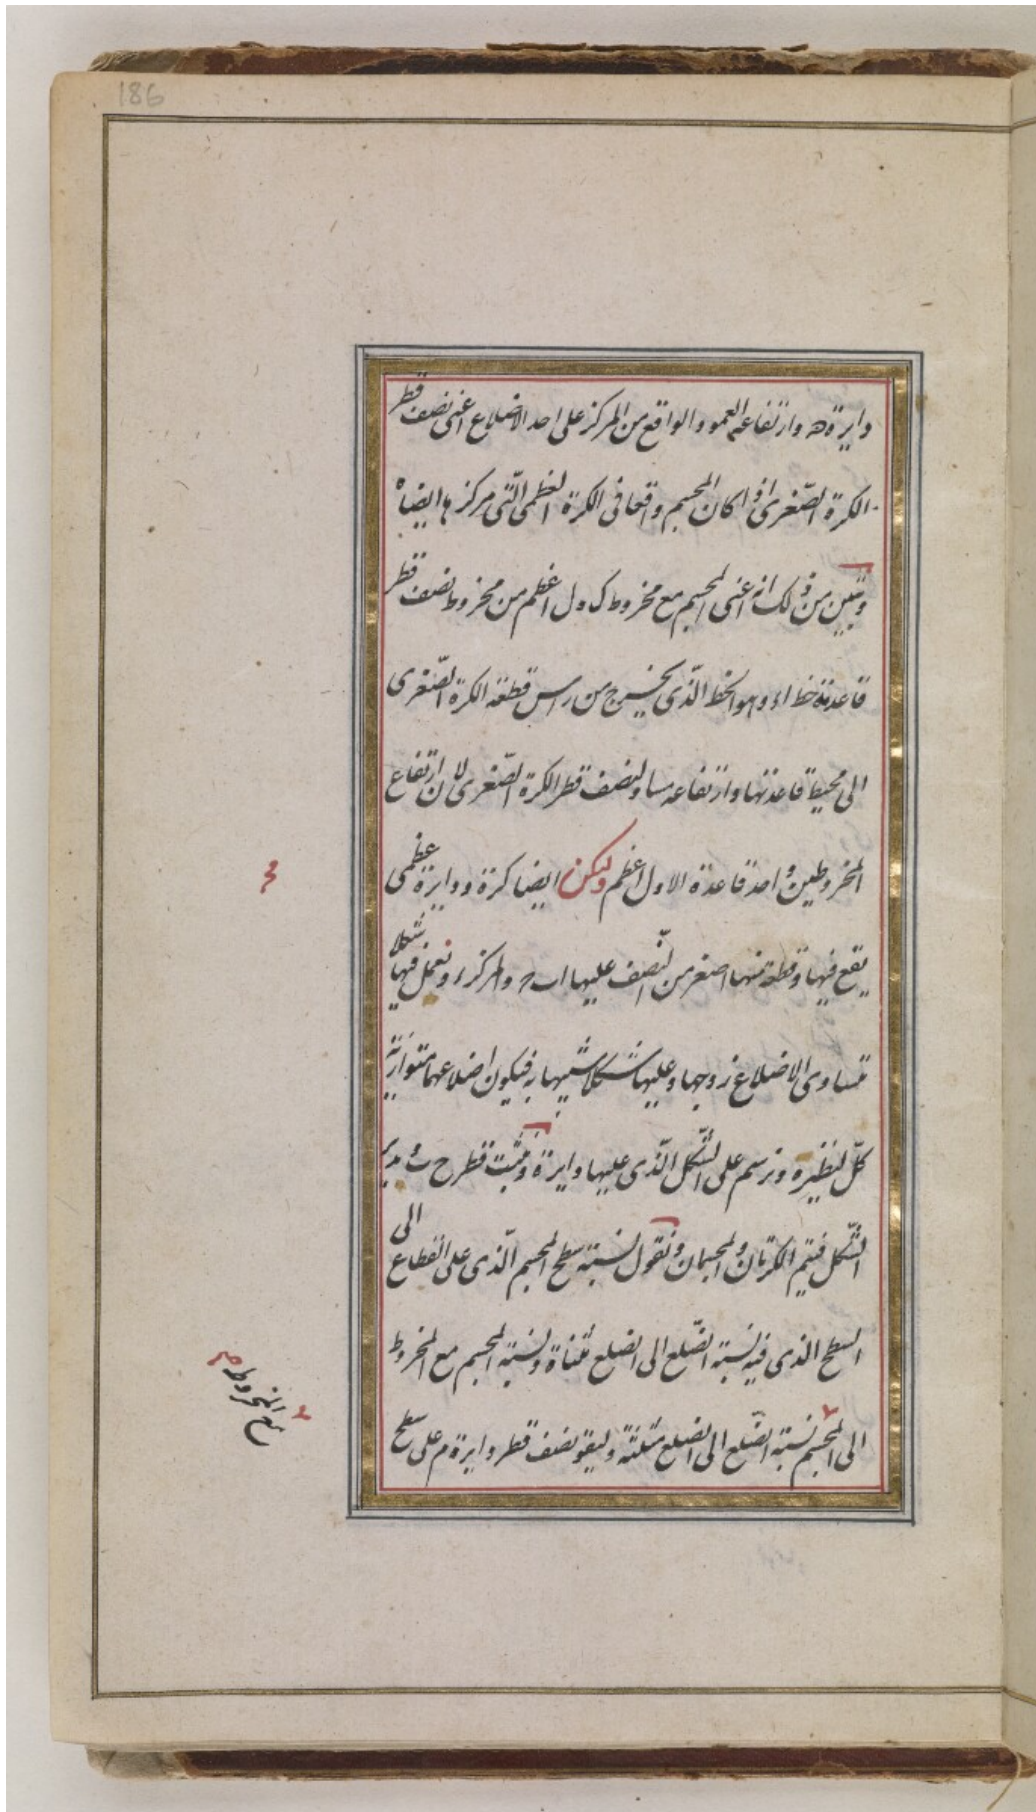 186
دايرة ه وارتفاعه العمود الواقع من المركز على احد الاضلاع اعنى نصف قطر
الكرة الصّغرى اذا كان المجسم واقعا فى الكرة العظمى الّتى مركزها ايضا ه
وتبين من ذلك انه اعنى المجسم مع مخروط ك ه ل اعظم من مخروط نصف قطر
قاعدته خط اء وهو الخط الّذى يخرج من راس قطعة الكرة الصّغرى
الى محيط قاعدتها وارتفاعه مساو لنصف قطر الكرة الصّغرى لان ارتفاع
المخروطين واحد قاعدة الاول اعظم وليكن ايضا كرة ودايرة عظمى
يقع فيها وقطعة منها اصغر من النّصف عليها ا ب ح والمركز ء ونعمل فيها شكلا
متساوى الاضلاع زوجها وعليها شكلا شبيها به فيكون اضلاعهما متوازية
كلّ لنظيره ونرسم على الشّكل الّذى عليها دايرة ونثبت قطر ح ندير
الشّكل فيتم الكرتان والمجسمان ونقول نسبة سطح المجسم الّذى على القطاع الى
السطح الذى فيه نسبة الضّلع الى الضلع مثناة ونسبة المجسم مع المخروط
الى المجسم نسبة الضّلع الى الضلع مثلثة وليقو نصف قطر دايرة م على سطح
مع المخروط صح